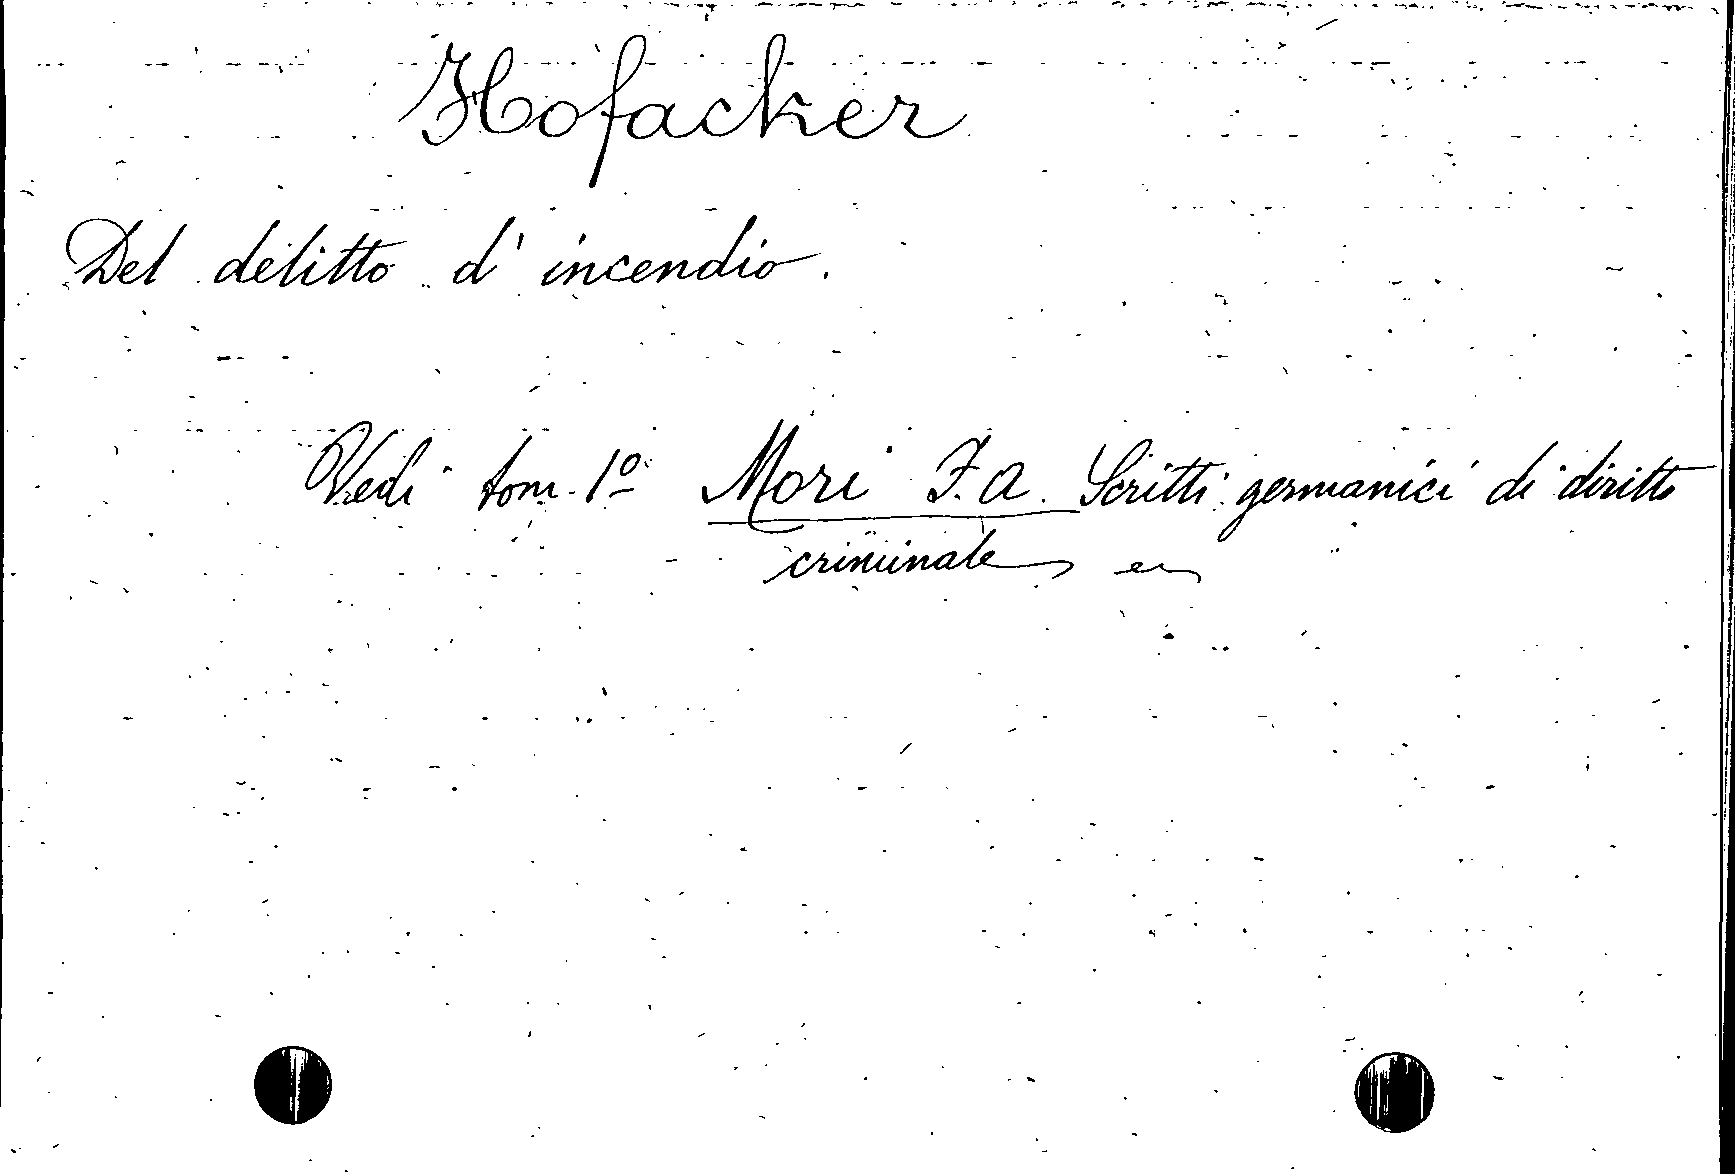 Hofacker
Del delitto d'incendio.
Vedi tom. 1º Mori F. A. Scritti germanici di diritto
criminale